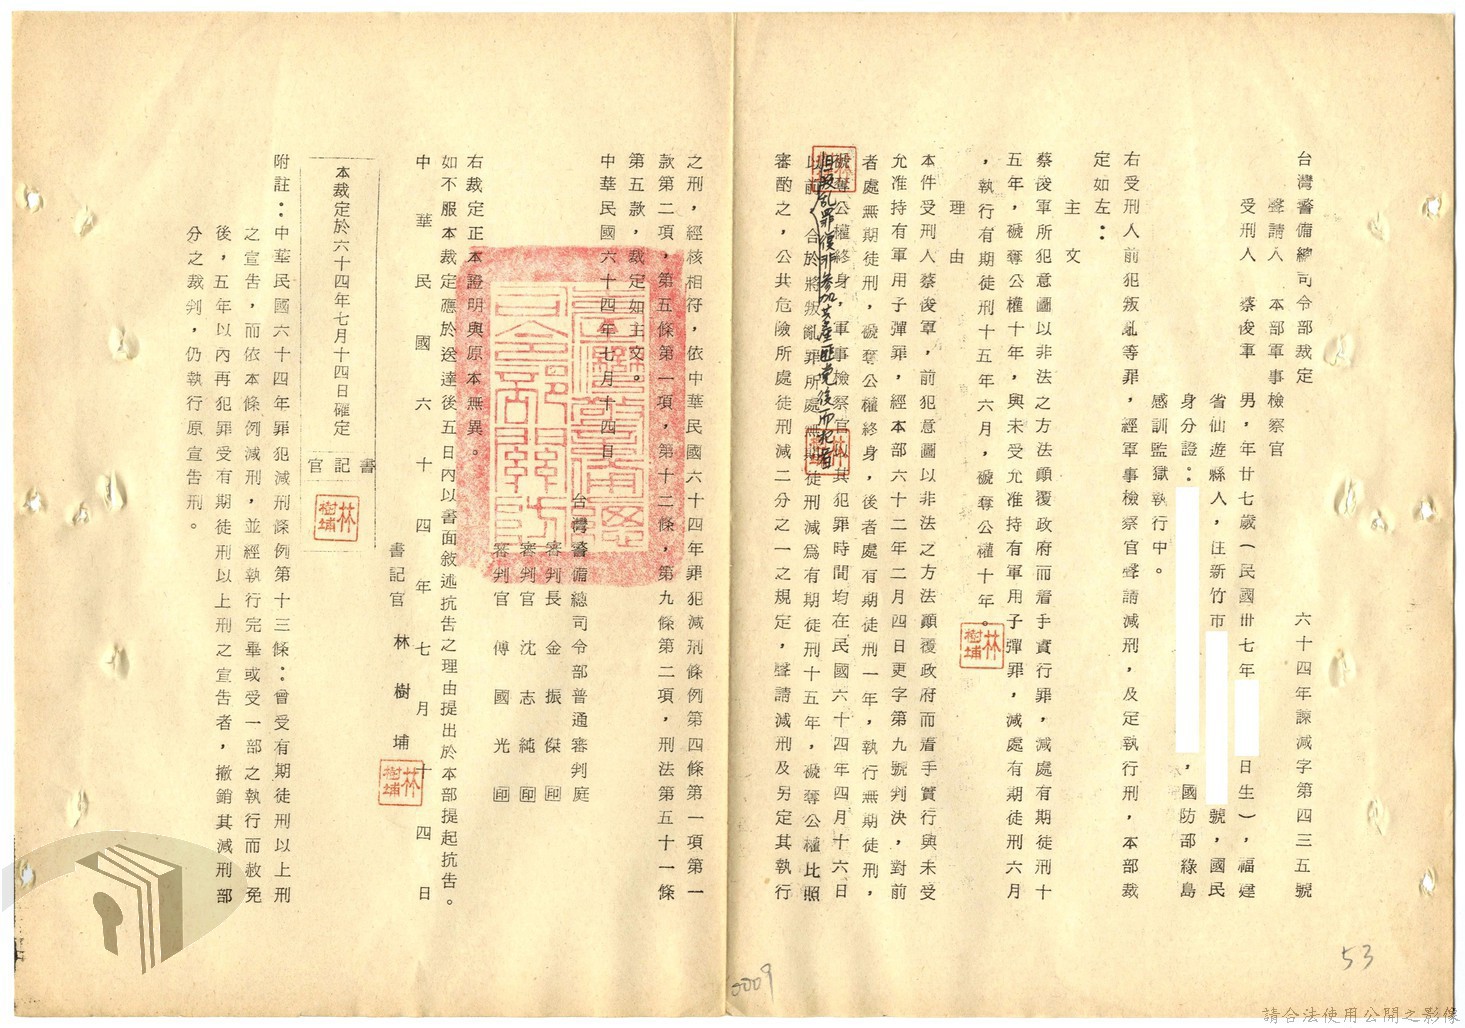 台灣警備總司令部裁定
六十四年諫減字第四三五號
聲請人　本部軍事檢察官
受刑人　蔡俊軍　男，年廿七歲（民國卅七年　日生），福建
省仙遊縣人，住新竹市　號，國民
身分證：　，國防部綠島
感訓監獄執行中。
右受刑人前犯叛亂等罪，經軍事檢察官聲請減刑，及定執行刑，本部裁
定如左：
主文
蔡俊軍所犯意圖以非法之方法顛覆政府而着手實行罪，減處有期徒刑十
五年，褫奪公權十年，與未受允准持有軍用子彈罪，減處有期徒刑六月
，執行有期徒刑十五年六月，褫奪公權十年。
理由
本件受刑人蔡俊軍，前犯意圖以非法之方法顛覆政府而着手實行與未受
允准持有軍用子彈罪，經本部六十二年二月四日更字第九號判決，對前
者處無期徒刑，褫奪公權終身，後者處有期徒刑一年，執行無期徒刑，
褫奪公權終身，軍事檢察官以其犯罪時間均在民國六十四年四月十六日
以前，
且叛亂罪復非參加共產匪党後而犯者
合於將叛亂罪所處無期徒刑減爲有期徒刑十五年，褫奪公權比照
審酌之，公共危險所處徒刑減二分之一之規定，聲請減刑及另定其執行
之刑，經核相符，依中華民國六十四年罪犯減刑條例第四條第一項第一
款第二項，第五條第一項，第十二條，第九條第二項，刑法第五十一條
第五款，裁定如主文。
中華民國六十四年七月十四日
台灣警備總司令部普通審判庭
審判長　金振傑　印
審判官　沈志純　印
審判官　傅國光　印
右裁定正本證明與原本無異。
如不服本裁定應於送達後五日內以書面敘述抗告之理由提出於本部提起抗告。
中華民國六十四年七月十四日
書記官　林樹埔
林樹埔
本裁定於六十四年七月十四日確定
書記官
林樹埔
附註：中華民國六十四年罪犯減刑條例第十三條：曾受有期徒刑以上刑
之宣告，而依本條例減刑，並經執行完畢或受一部之執行而赦免
後，五年以內再犯罪受有期徒刑以上刑之宣告者，撤銷其減刑部
分之裁判，仍執行原宣告刑。
53
0009
請合法使用公開之影像